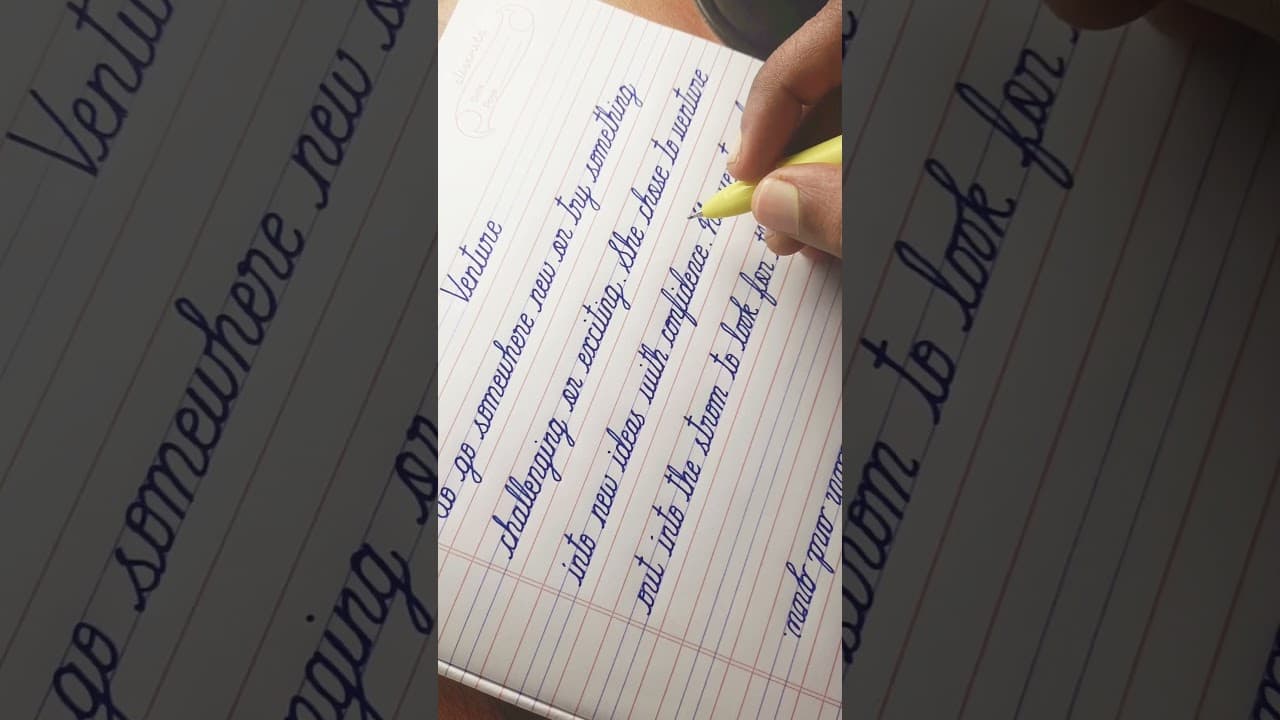 Venture
to go somewhere new or try something
challenging or exciting. She chose to venture
into new ideas with confidence.
out into the strom to look for
and grow.
classmate
Date
Page